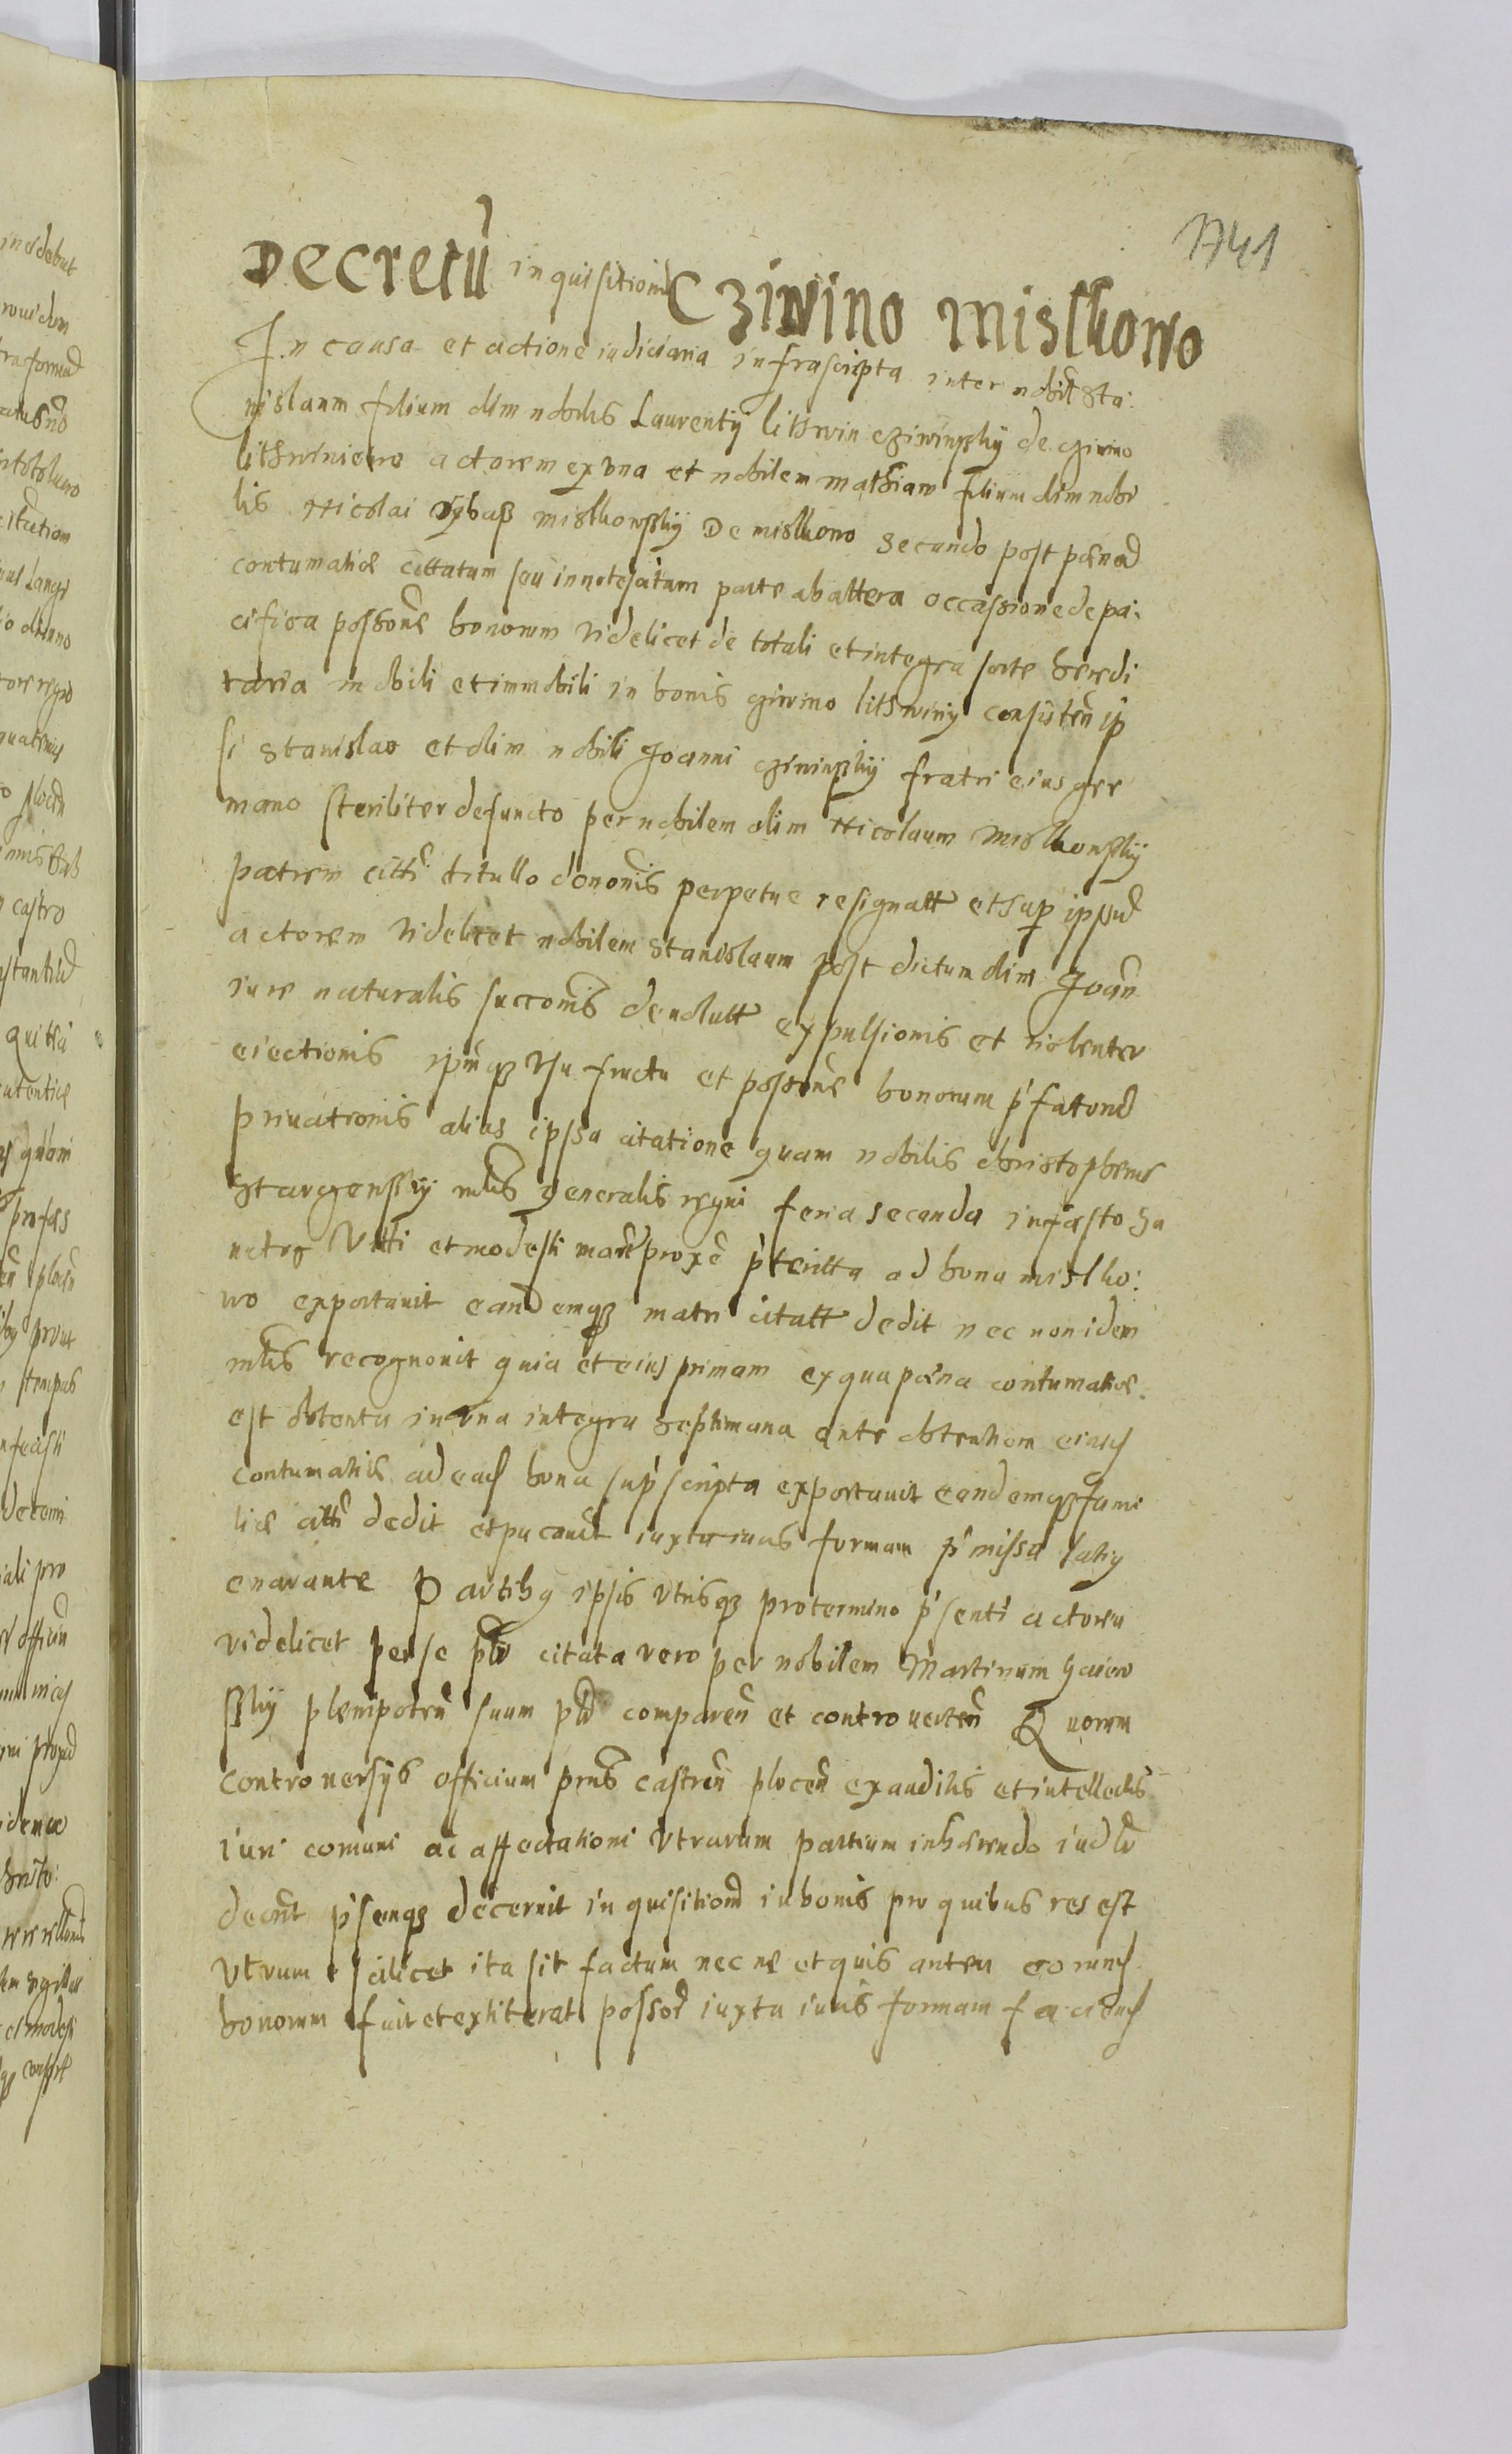 1741
Decretũ inquisitiom̃ Cziwino Mislkowo
In causa et actione iudiciaria infrascripta inter nobilẽ Sta:
nislaum filium olim nobilis Laurentij lithwin cziwinskij de cziwino
lithwiniewo actorem ex una et nobilem mathiam filium olim nobi
lis Nicolai mislkowskij De mislkowo secundo post pœnã
contumatiæ cittatum seu innotescitam parte ab altera occassione de pa:
cifica possone bonorum videlicet de totali et integra sorte heredi
taria mobili et immobili in bonis cziwino lithwiny consisteñ ip
si Stanislao et olim nobili Joanni cziwinskij fratri eius ger
mano steriliter defuncto per nobilem olim Nicolaum mislkowskij
patrem citti titullo dononis perpetue resignatt et sup ipsũ
actorem videlicet nobilem Stanislaum post dictum olim Joañ
iure naturalis succonis deuolutt expulsionis et violenter
eiectionis ipmq3 vsu fructu et possone bonorum p'fatorũ
priuationis alias ipsa citatione quam nobilis christopherus
Stargenskij mlis generalis regni feria secunda in festo Sa
nctor Vitti et modesti mart proxe p'teritta ad bona mislko:
wo exportauit eandemq3 matri citatt dedit nec non idem
mlis recognouit quia et eius primam ex qua pœna contumatiæ
est obtenta in una integra septimana ante obtentiom eiusd
contumatiæ ad ead bona sup'scripta exportauit eandemq3 fami
liæ citti dedit et pucauit iuxta iuris formam p'missa latiꝫ
enarante Partibꝫ ipsis vtrisq3 pro termino p'senti actorea
videlicet per se citata vero per nobilem Martinum
skij plenipoteñ suum compareñ et controuerteñ Quorum
controuersijs officium p'ns castreñ ploceñ exauditis et intellectis
iuri comuni ac affectationi vtrarum partium inhærendo iud
decreuit p'senq3 decernit inquisitiom in bonis pro quibus res est
vtrum scilicet ita sit factum nec ne et quis antea eorund
bonorum fuit et extiterat possor iuxta iuris formam faciend